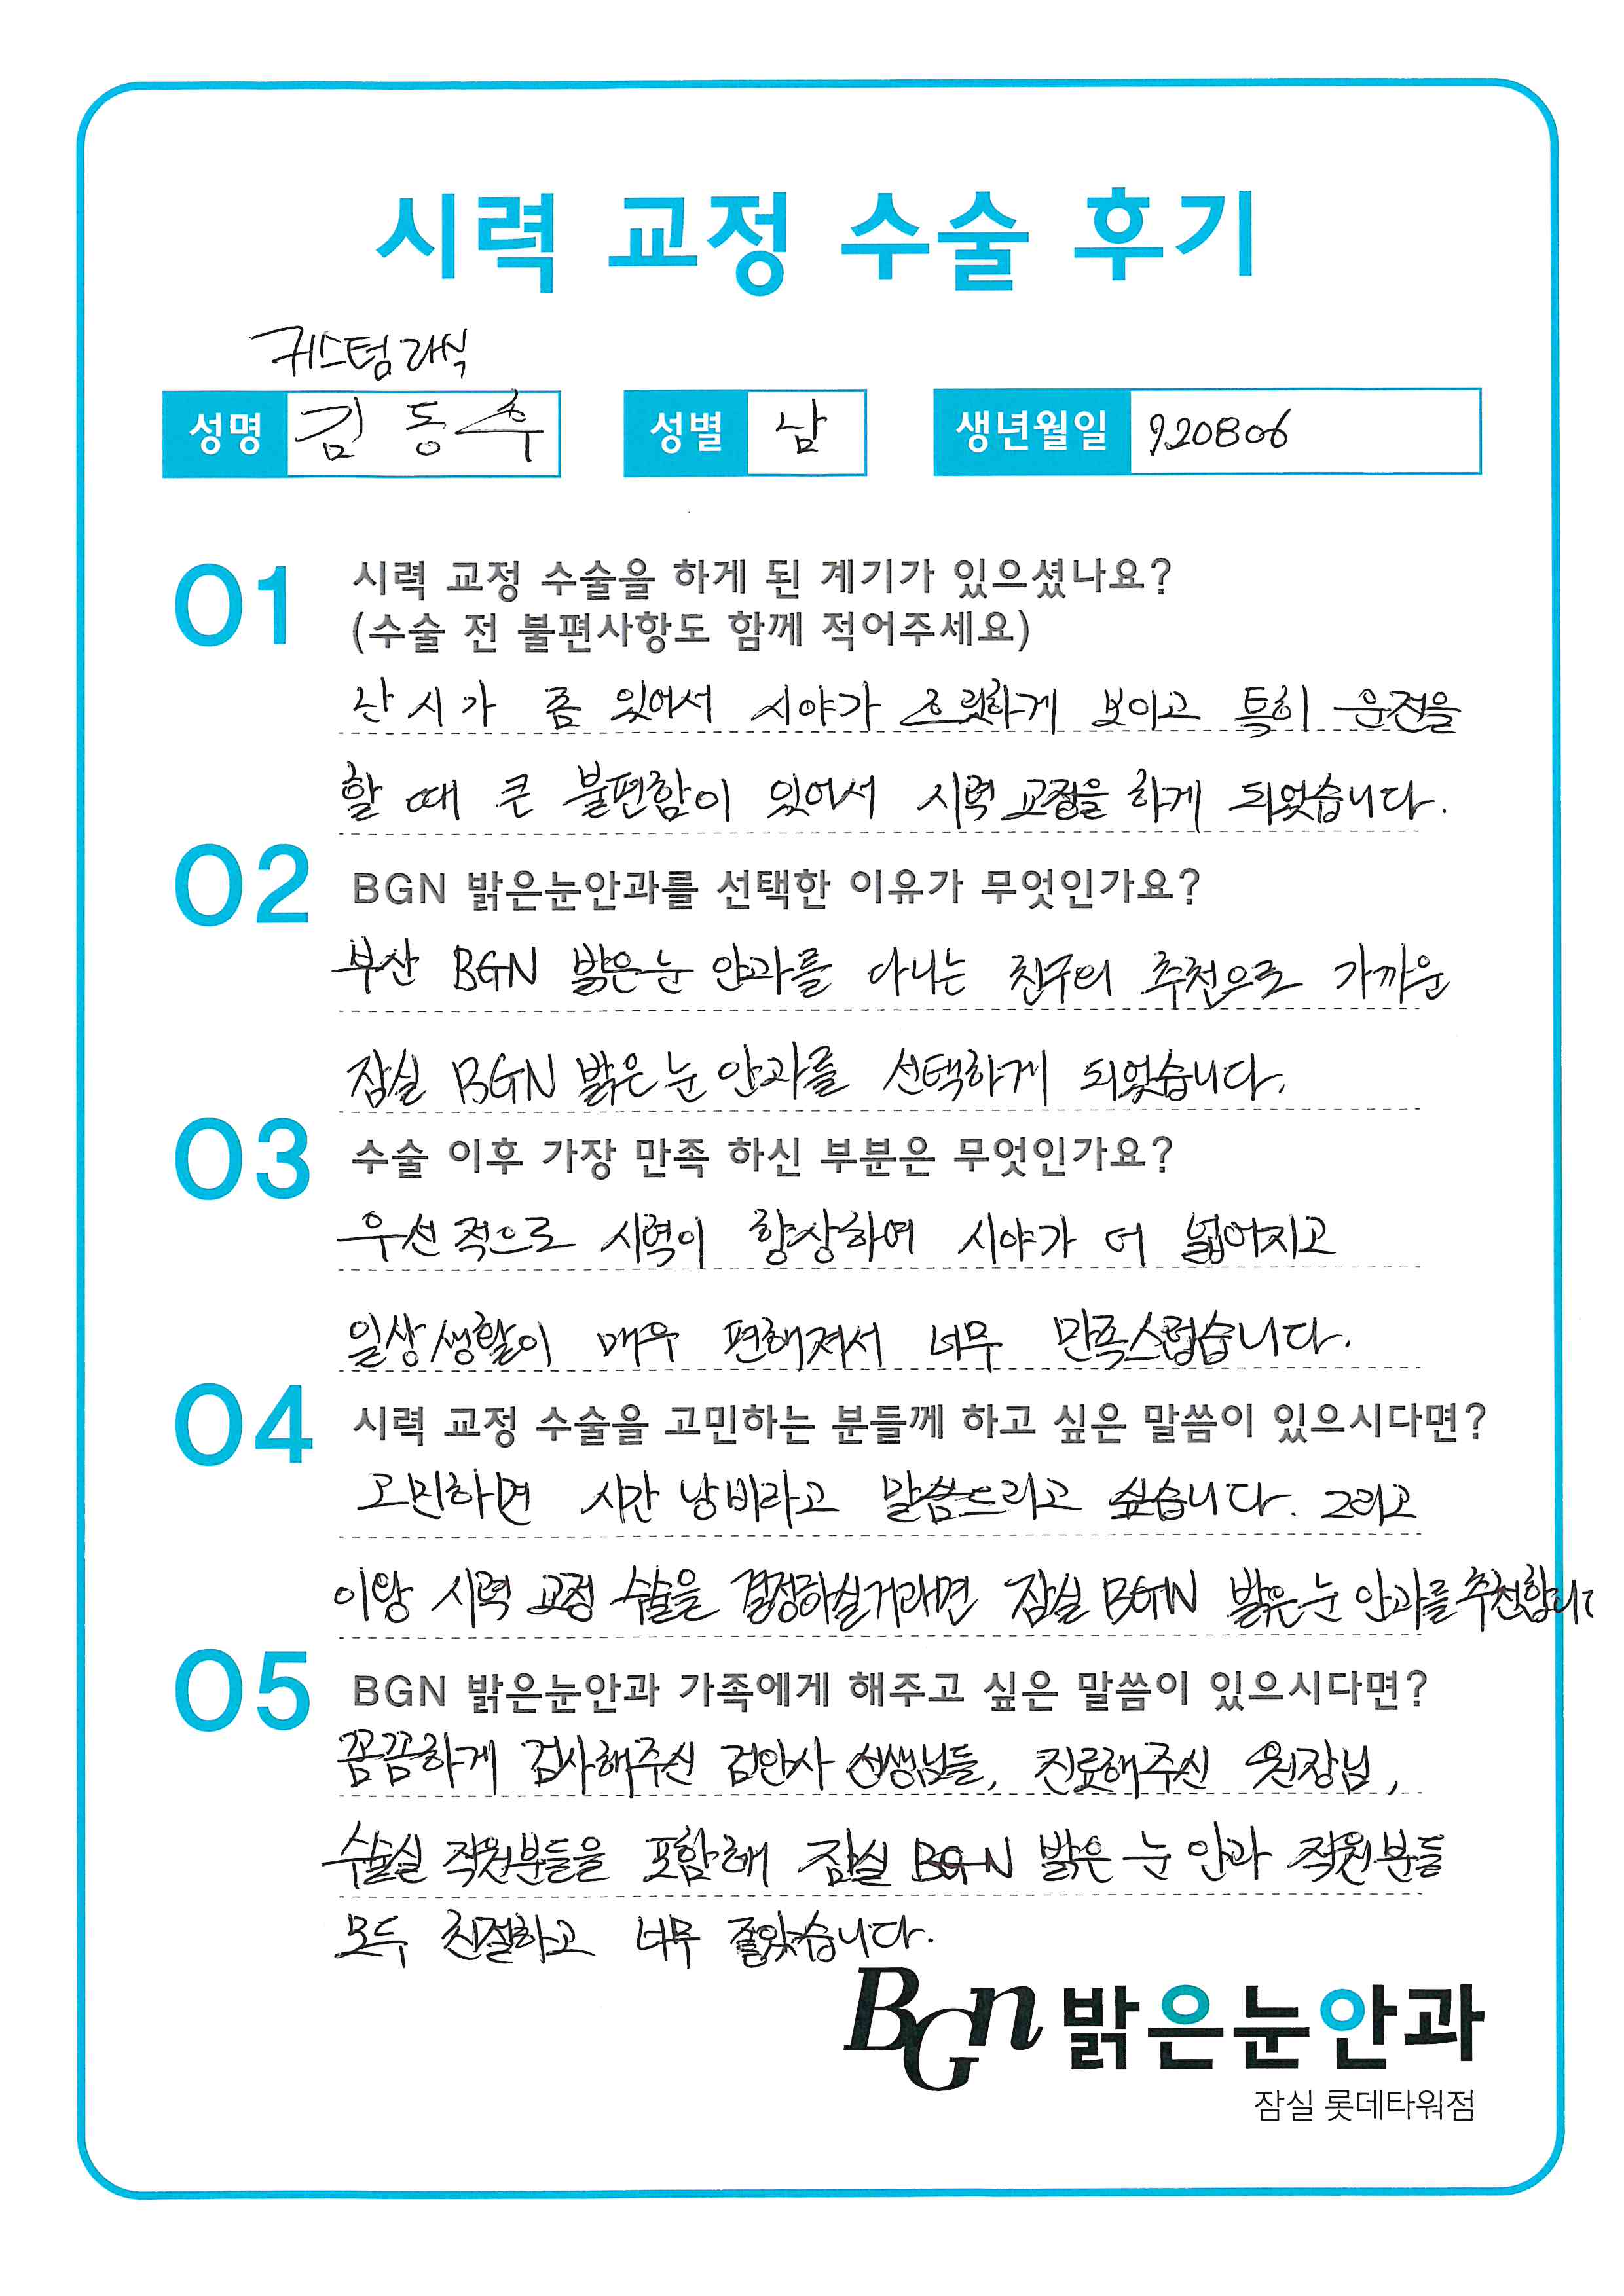 시력 교정 수술 후기
커스텀라식
성명 김동수 성별 남 생년월일 920806
01 시력 교정 수술을 하게 된 계기가 있으셨나요?
(수술 전 불편사항도 함께 적어주세요)
난시가 좀 있어서 시야가 흐릿하게 보이고 특히 운전을
할 때 큰 불편함이 있어서 시력 교정을 하게 되었습니다.
02 BGN 밝은눈안과를 선택한 이유가 무엇인가요?
부산 BGN 밝은눈 안과를 다니는 친구의 추천으로 가까운
잠실 BGN 밝은눈 안과를 선택하게 되었습니다.
03 수술 이후 가장 만족 하신 부분은 무엇인가요?
우선적으로 시력이 향상하여 시야가 더 넓어지고
일상생활이 매우 편해져서 너무 만족스럽습니다.
04 시력 교정 수술을 고민하는 분들께 하고 싶은 말씀이 있으시다면?
고민하면 시간 낭비라고 말씀드리고 싶습니다. 그리고
이왕 시력 교정 수술을 결정하실거라면 잠실 BGN 밝은눈 안과를 추천합니다
05 BGN 밝은눈안과 가족에게 해주고 싶은 말씀이 있으시다면?
꼼꼼하게 검사해주신 검안사 선생님들, 진료해주신 원장님,
수술실 직원분들을 포함해 잠실 BGN 밝은 눈 안과 직원분들
모두 친절하고 너무 좋았습니다.
BGn 밝은눈안과
잠실 롯데타워점